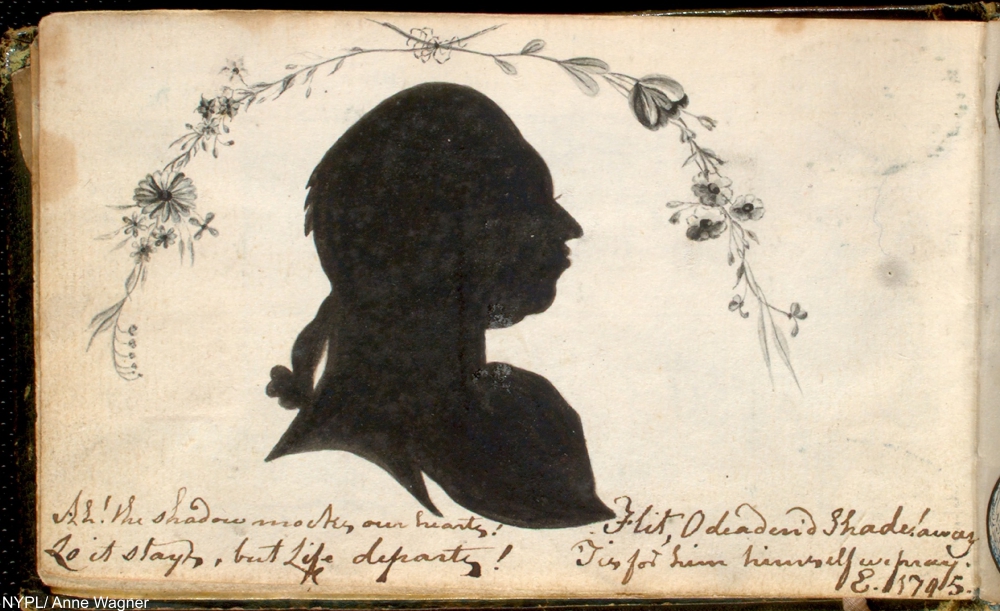 Ah! the shadow mocks our hearts!
Lo it stays, but Life departs!
Flit, O deaden'd Shade! away
Tis for him himself we pray.
E. 1795.
NYPL/ Anne Wagner